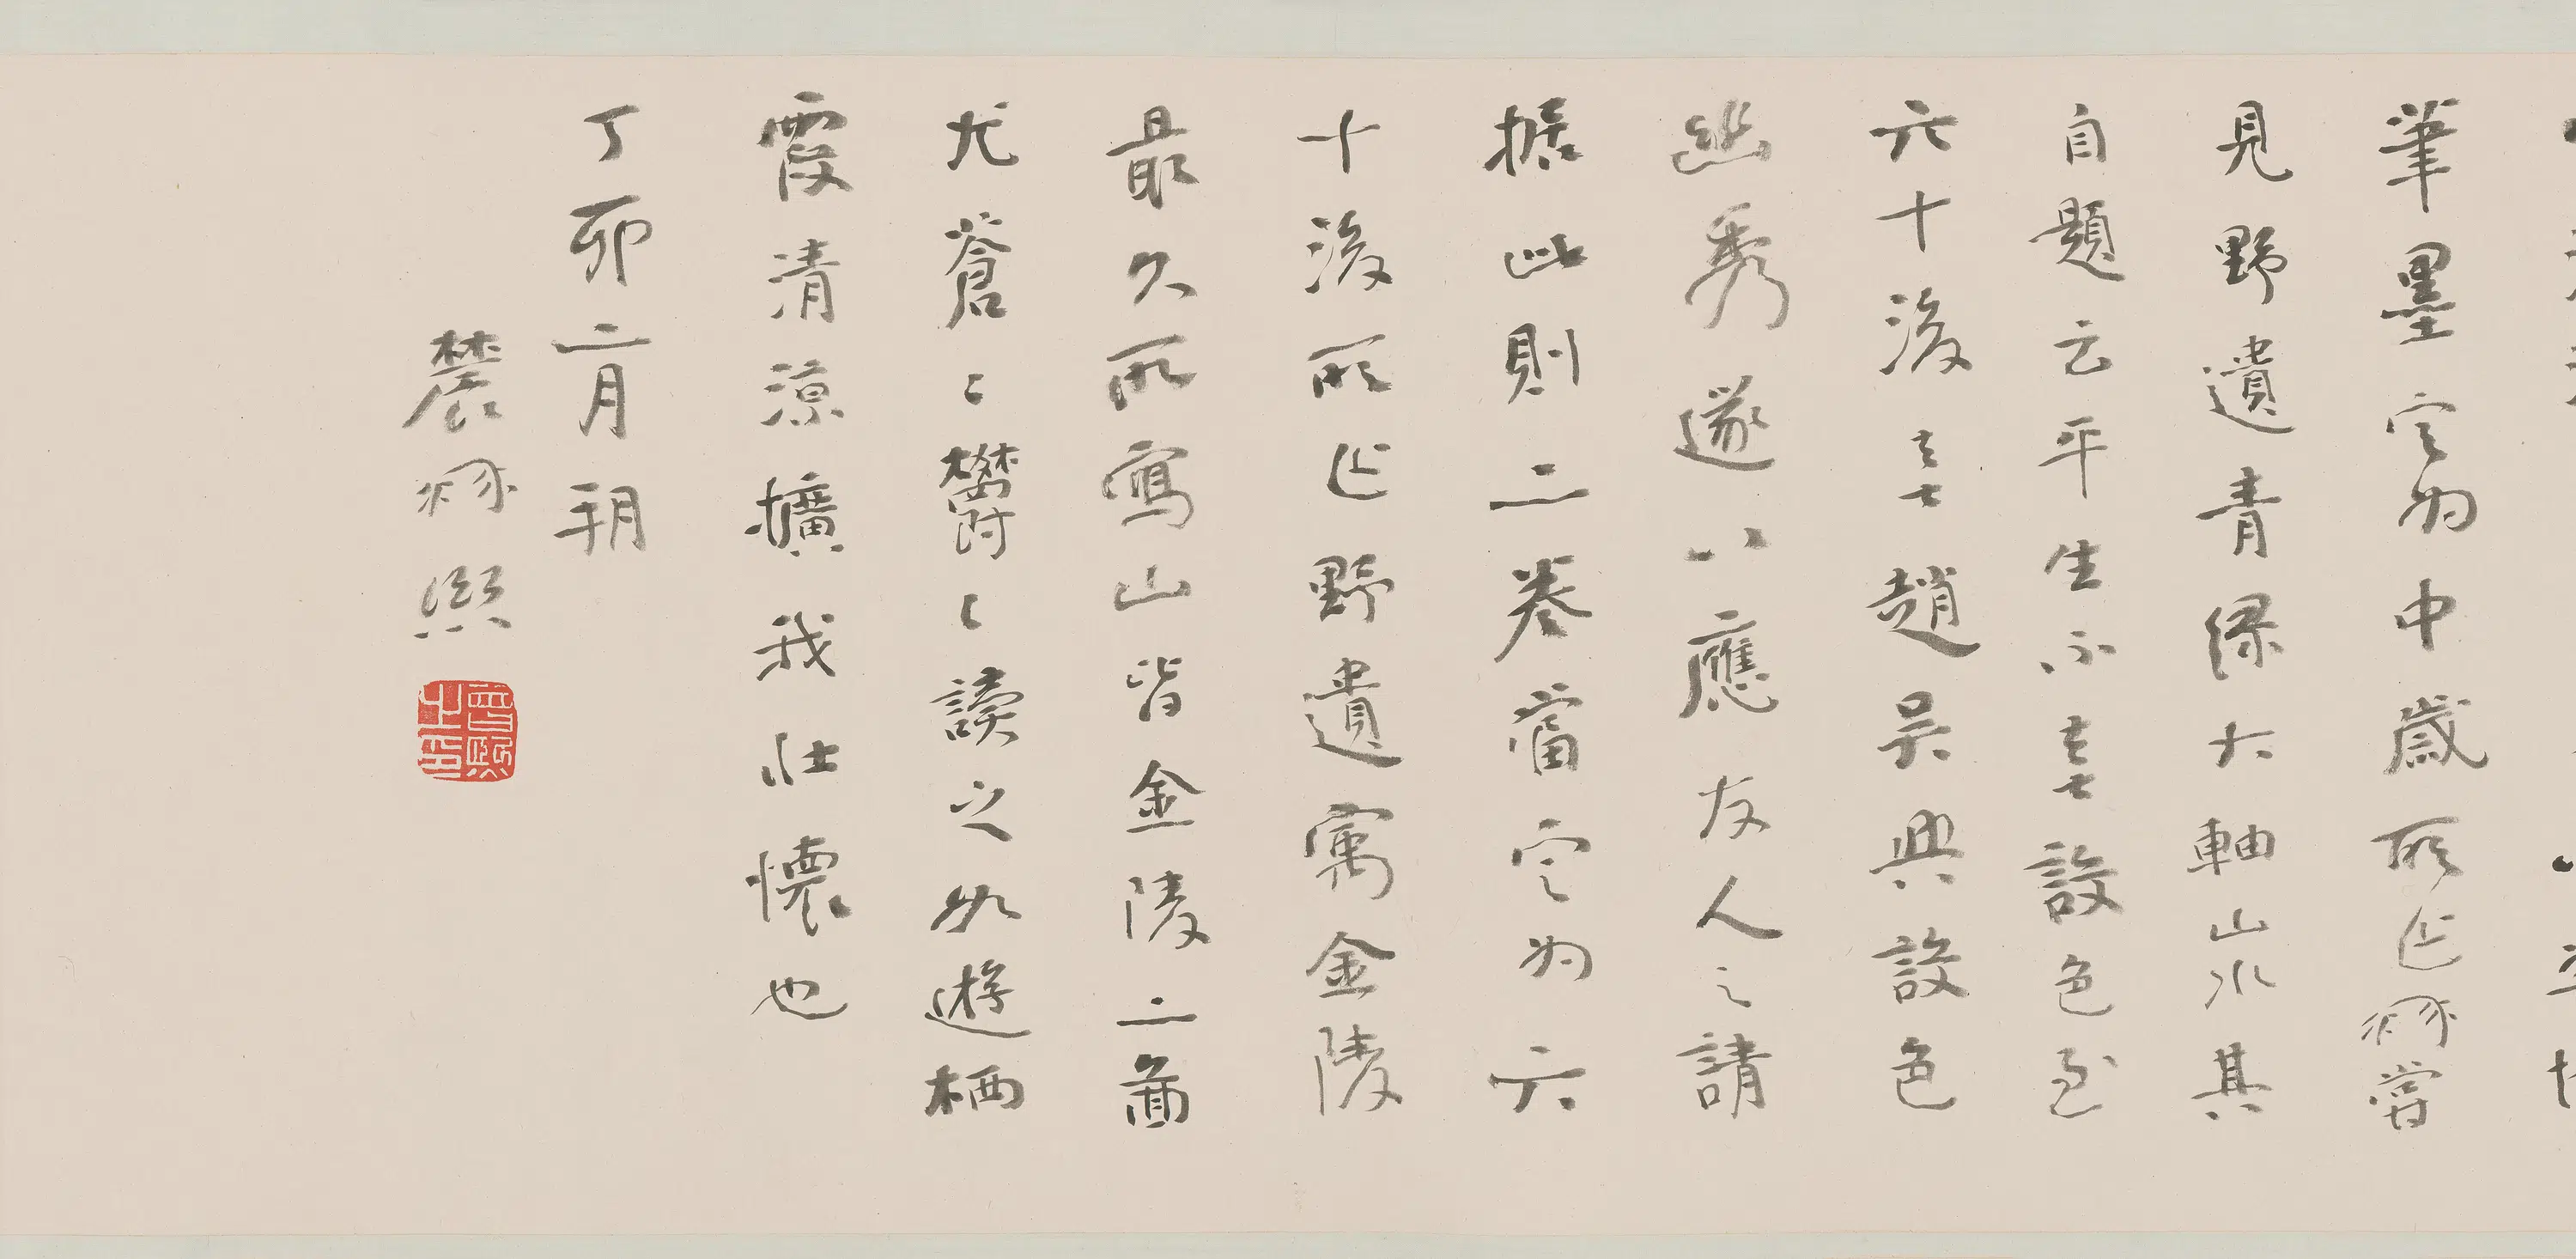 筆墨定为中歲所作髯嘗
見野遺青綠大軸山水其
自題云平生不喜設色至
六十後喜趙吳興設色
幽秀遂以應友人之請
据此則二卷當定为六
十後所作野遺寓金陵
最久所寫山皆金陵二啚
尤蒼〻鬱〻讀之如遊栖
霞清涼擴我壯懷也
丁卯二月朔
農髯熙
曾熙之印